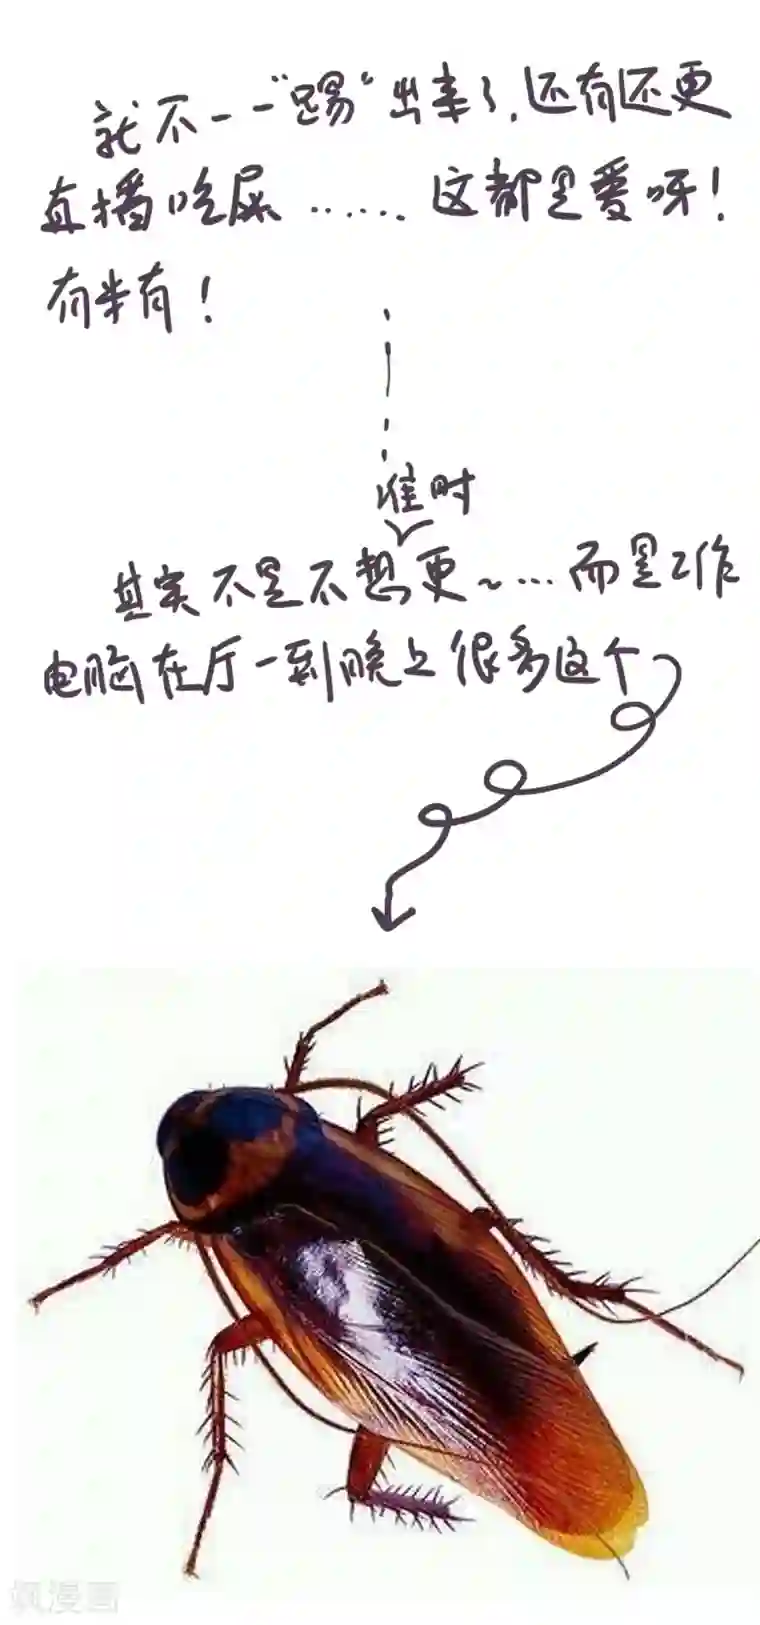 就不一一“踢”出来了,还有还更
直播吃屎......这都是爱呀!
有半有!
准时
其实不是不想更~...而是工作
电脑在厅一到晚上很多这个
飒漫画